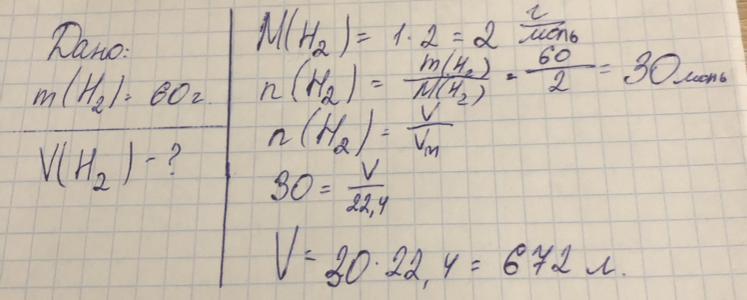 Дано:
m(H₂) = 60 г.
V(H₂) - ?
M(H₂) = 1·2 = 2 г/моль
n(H₂) = m(H₂)/M(H₂) = 60/2 = 30 моль
n(H₂) = V/Vm
30 = V/22,4
V = 30·22,4 = 672 л.